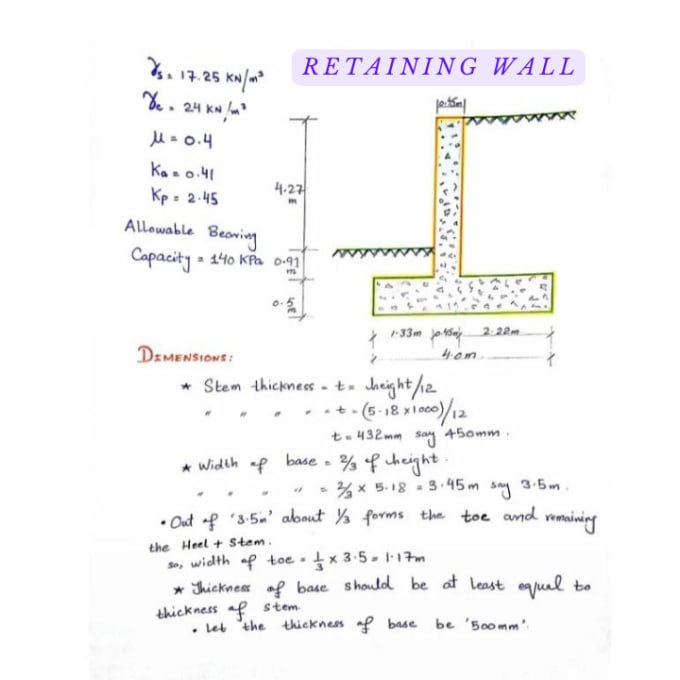 RETAINING WALL
γs = 17.25 KN/m³
γc = 24 KN/m³
μ = 0.4
Ka = 0.41
Kp = 2.45
Allowable Bearing
Capacity = 140 KPa
0.45m
4.27
m
0.91
m
0.5
m
1.33m 0.45m 2.22m
4.0m
DIMENSIONS:
* Stem thickness = t = height/12
" " " " = t = (5.18 x1000)/12
t = 432mm say 450mm.
* Width of base = 2/3 of height.
" " " " = 2/3 x 5.18 = 3.45m say 3.5m.
• Out of '3.5m' about 1/3 forms the toe and remaining
the Heel + Stem.
so, width of toe = 1/3 x 3.5 = 1.17m
* Thickness of base should be at least equal to
thickness of stem.
• Let the thickness of base be '500mm'.